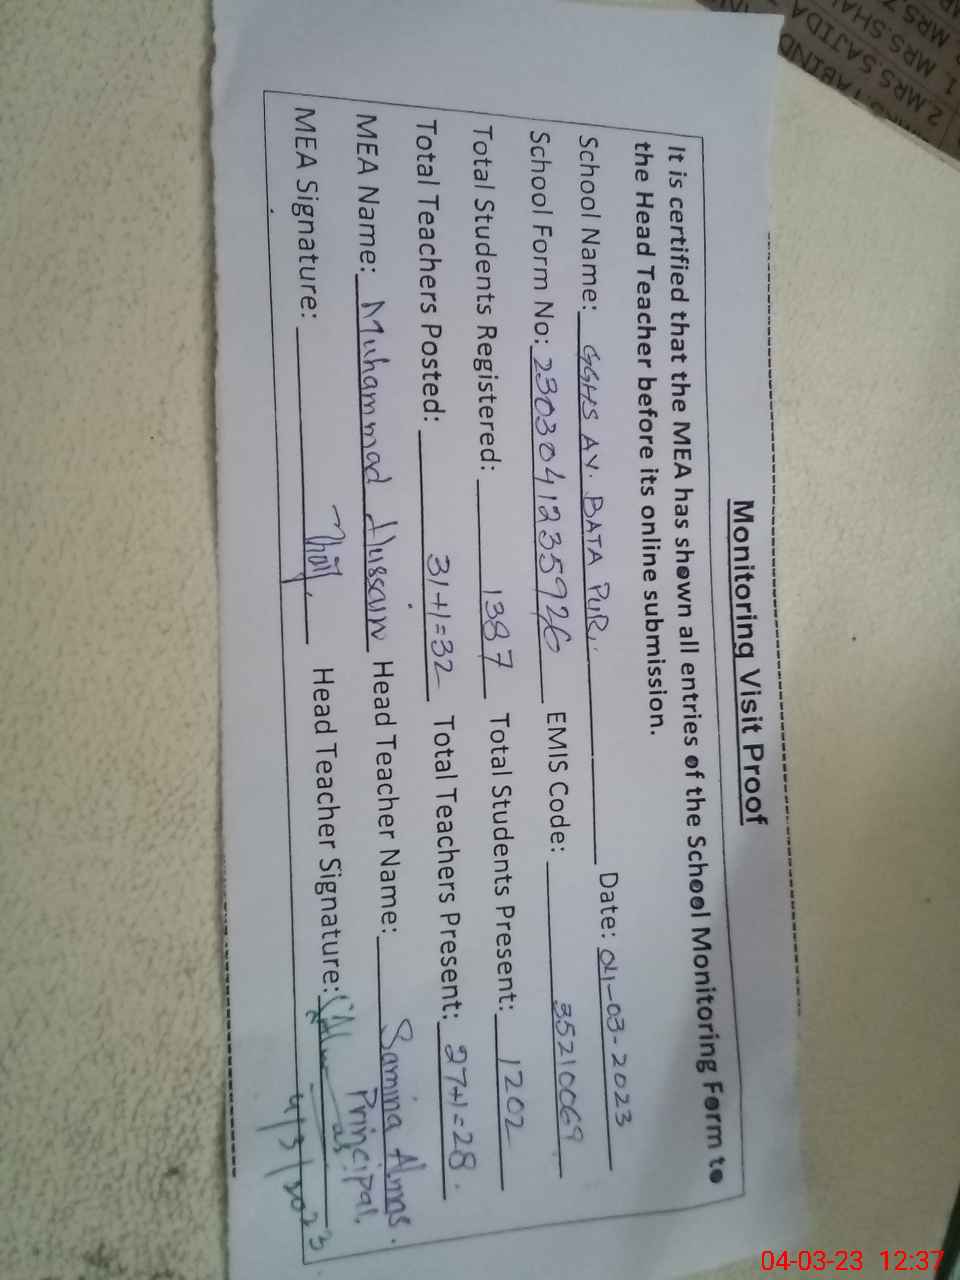 Monitoring Visit Proof
It is certified that the MEA has shown all entries of the School Monitoring Form to
the Head Teacher before its online submission.
School Name: GGHS AV. BATA PUR. Date: 04-03-2023
School Form No: 2303041235926 EMIS Code: 35210069
Total Students Registered: 1387 Total Students Present: 1202
Total Teachers Posted: 31+1=32 Total Teachers Present: 27+1=28.
MEA Name: Muhammad Hussain Head Teacher Name: Samina Almas.
Principal.
MEA Signature: Head Teacher Signature:
4/3/2023
2. MRS. SAJIDA
1. MRS. SHA
MRS.
04-03-23 12:37